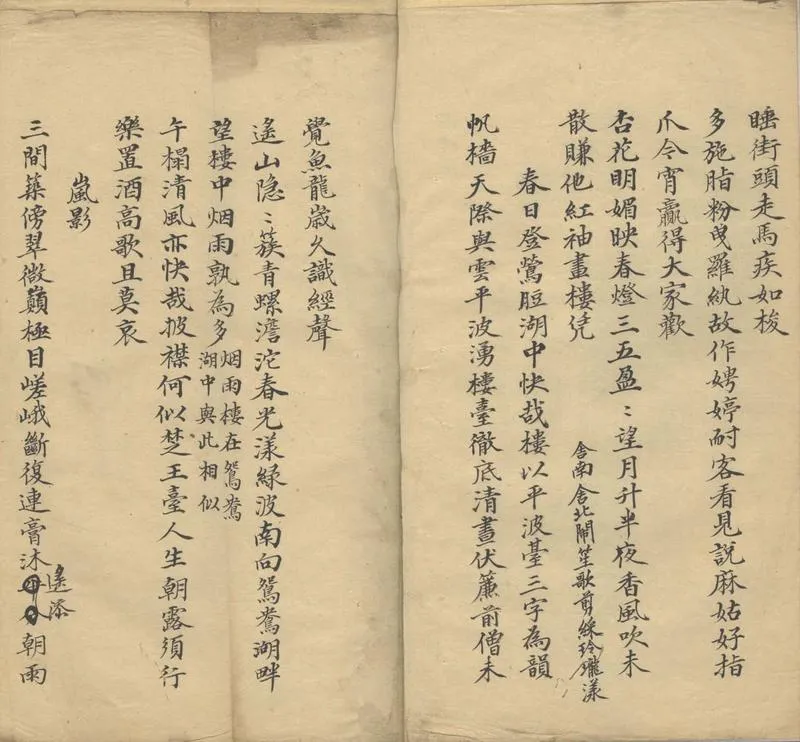 睡街頭走馬疾如梭
多施脂粉曳羅紈故作娉婷耐客看見說麻姑好指
爪今宵贏得大家歡
杏花明媚映春燈三五盈〻望月升半夜香風吹未
散賺他紅袖畫樓凭
舍南舍北鬧笙歌剪綵玲瓏漾
春日登鶯脰湖中快哉樓以平波臺三字為韻
帆檣天際與雲平波湧樓臺徹底清晝伏簾前僧未
覺魚龍歲久識經聲
遙山隐〻簇青螺澹沱春光漾綠波南向鴛鴦湖畔
望樓中烟雨孰為多
烟雨樓在鴛鴦
湖中與此相似
午榻清風亦快哉披襟何似楚王臺人生朝露須行
樂置酒高歌且莫哀
嵐影
三間築傍翠微巔極目嵯峨斷復連膏沐朝雨
遙添